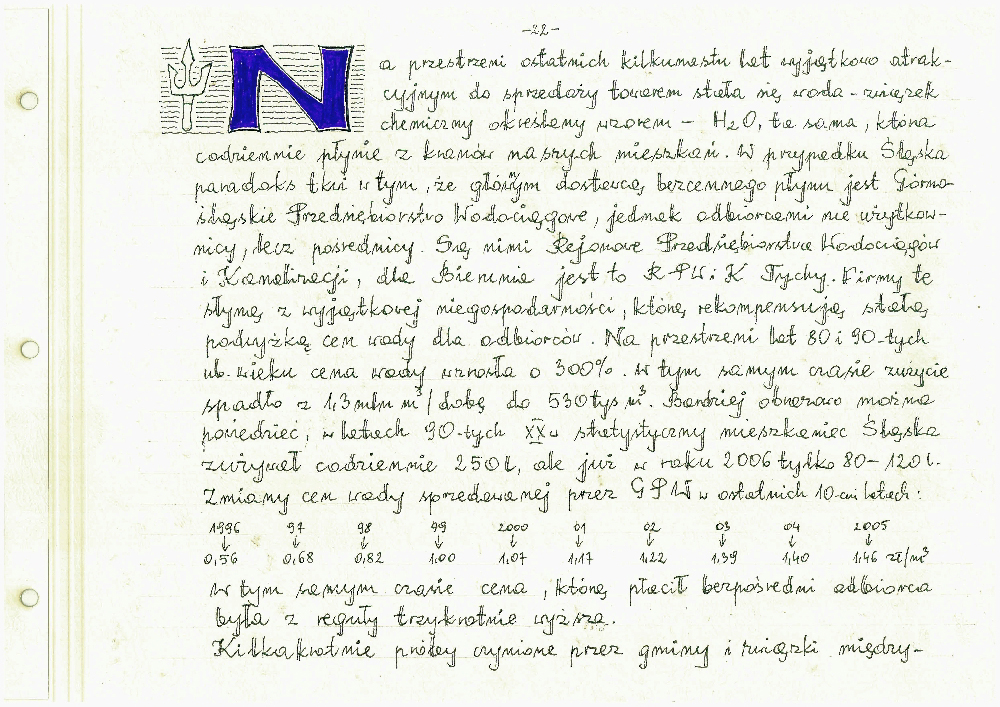 -22-
Na przestrzeni ostatnich kilkunastu lat wyjątkowo atrak-
cyjnym do sprzedaży towarem stała się woda - związek
chemiczny określany wzorem - H₂O, ta sama, która
codziennie płynie z kranów naszych mieszkań. W przypadku Śląska
paradoks tkwi w tym, że głównym dostawcą bezcennego płynu jest Górno-
śląskie Przedsiębiorstwo Wodociągowe, jednak odbiorcami nie użytkow-
nicy, lecz pośrednicy. Są nimi Rejonowe Przedsiębiorstwa Wodociągów
i Kanalizacji, dla Bierunia jest to RPWiK Tychy. Firmy te
słyną z wyjątkowej niegospodarności, którą rekompensują stałą
podwyżką cen wody dla odbiorców. Na przestrzeni lat 80 i 90-tych
ub. wieku cena wody wzrosła o 300%. w tym samym czasie zużycie
spadło z 1,3 mln m³/dobę do 530 tys m³. Bardziej obrazowo można
powiedzieć, w latach 90-tych XX w statystyczny mieszkaniec Śląska
zużywał codziennie 250 l, ale już w roku 2006 tylko 80-120 l.
Zmiany cen wody sprzedawanej przez GPW w ostatnich 10-ciu latach:
1996 97 98 99 2000 01 02 03 04 2005
↓ ↓ ↓ ↓ ↓ ↓ ↓ ↓ ↓ ↓
0,56 0,68 0,82 1,00 1,07 1,17 1,22 1,39 1,40 1,46 zł/m³
w tym samym czasie cena, którą płacił bezpośredni odbiorca
była z reguły trzykrotnie wyższa.
Kilkakrotnie próby czynione przez gminy i związki między-